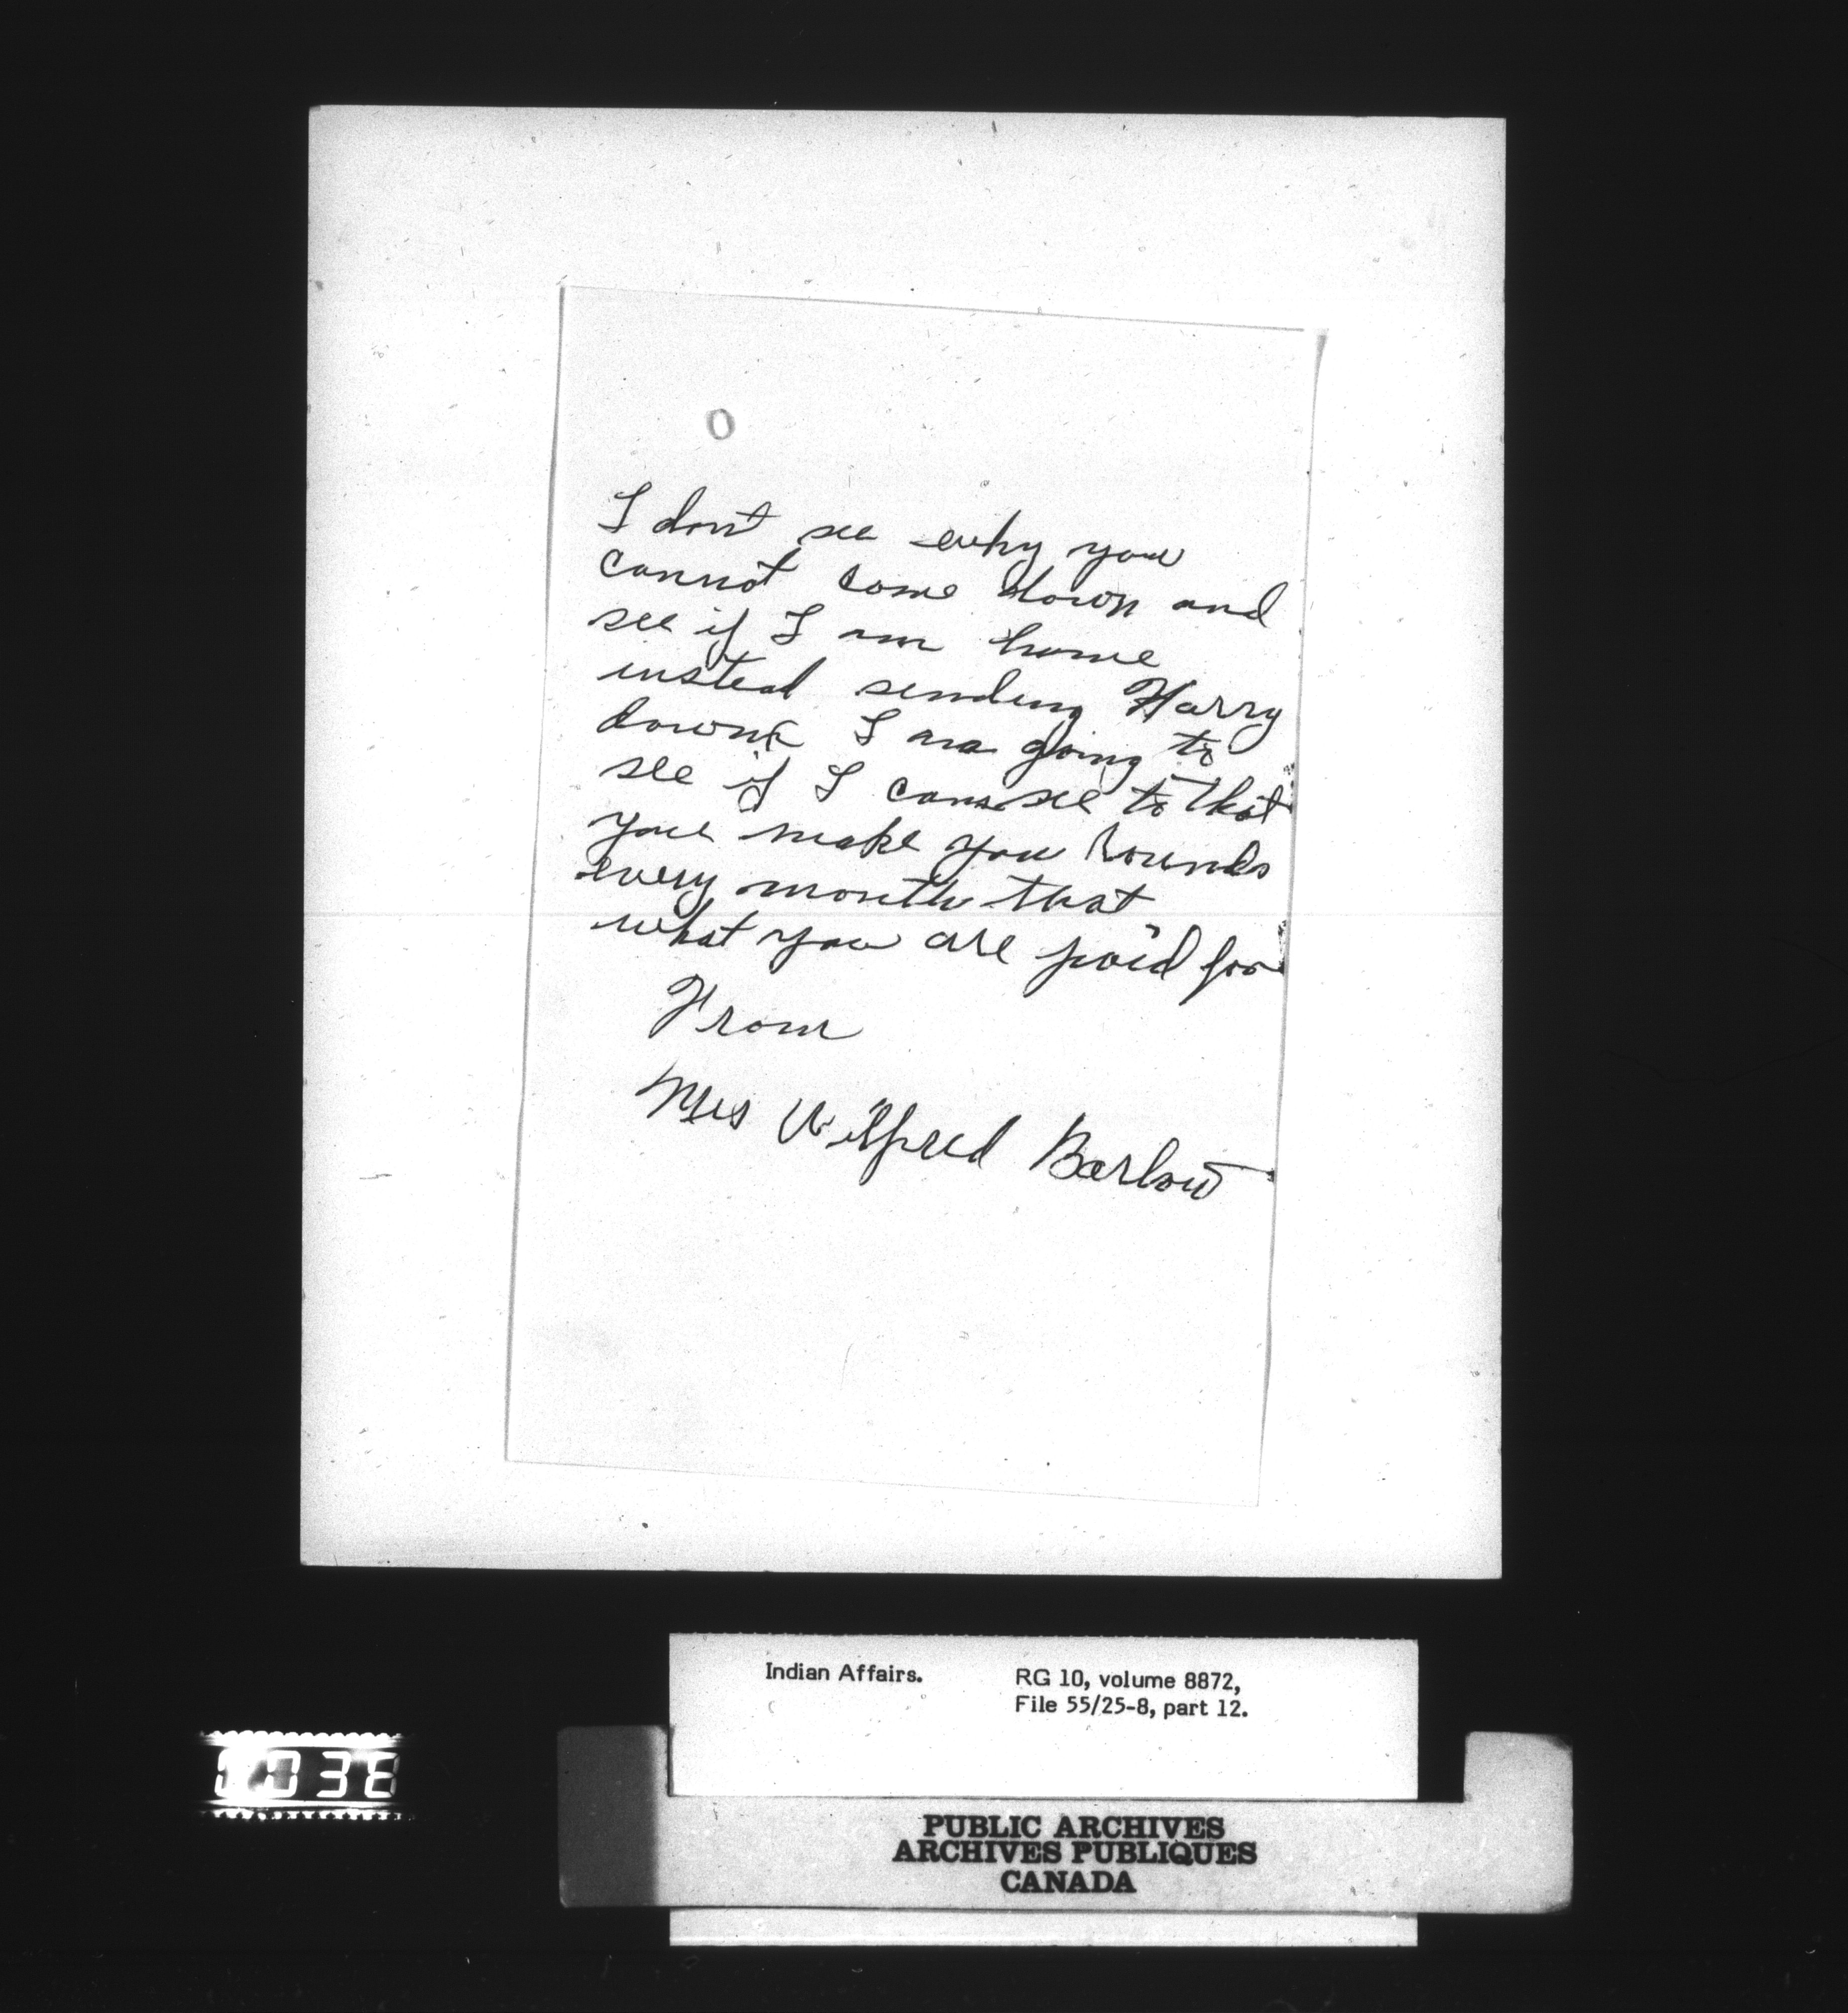 I don't see why you
cannot come down and
see if I am home
instead sending Harry
down I am going to
see if I can see to that
you make you rounds
every month that
what you are paid for
From
Mrs Wilfred Barlow
Indian Affairs. RG 10, volume 8872,
File 55/25-8, part 12.
PUBLIC ARCHIVES
ARCHIVES PUBLIQUES
CANADA